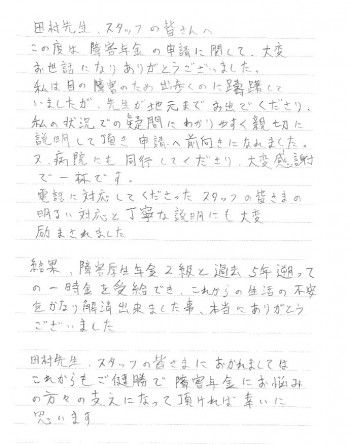 田村先生、スタッフの皆さんへ
この度は障害年金の申請に関して、大変
お世話になりありがとうございました。
私は目の障害のため出歩くのに躊躇して
いましたが、先生が地元までお出でくださり、
私の状況での疑問にわかりやすく親切に
説明して頂き申請へ前向きになれました。
又、病院にも同行してくださり、大変感謝
で一杯です。
電話に対応してくださったスタッフの皆さまの
明るい対応と丁寧な説明にも大変
励まされました
結果、障害厚生年金2級と過去5年遡って
の一時金を受給でき、これからの生活の不安
をかなり解消出来ました事、本当にありがとう
ございました
田村先生、スタッフの皆さまにおかれましては
これからもご健勝で障害年金にお悩み
の方々の支えになって頂ければ幸いに
思います